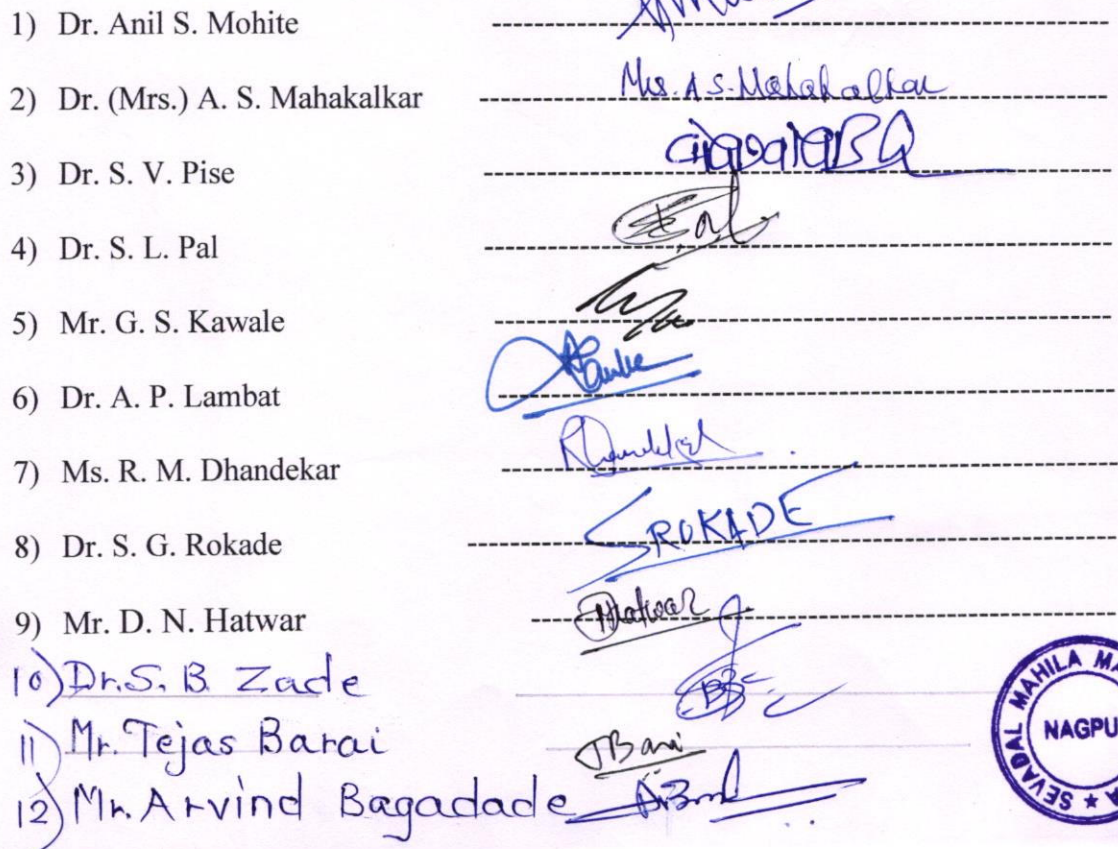 1) Dr. Anil S. Mohite
2) Dr. (Mrs.) A. S. Mahakalkar Mrs. A S. Mahakalkar
3) Dr. S. V. Pise
4) Dr. S. L. Pal
5) Mr. G. S. Kawale
6) Dr. A. P. Lambat
7) Ms. R. M. Dhandekar
8) Dr. S. G. Rokade SROKADE
9) Mr. D. N. Hatwar
10) Dr. S. B. Zade
11) Mr. Tejas Barai
12) Mr. Arvind Bagadade
SEVADAL MAHILA MA
NAGPU